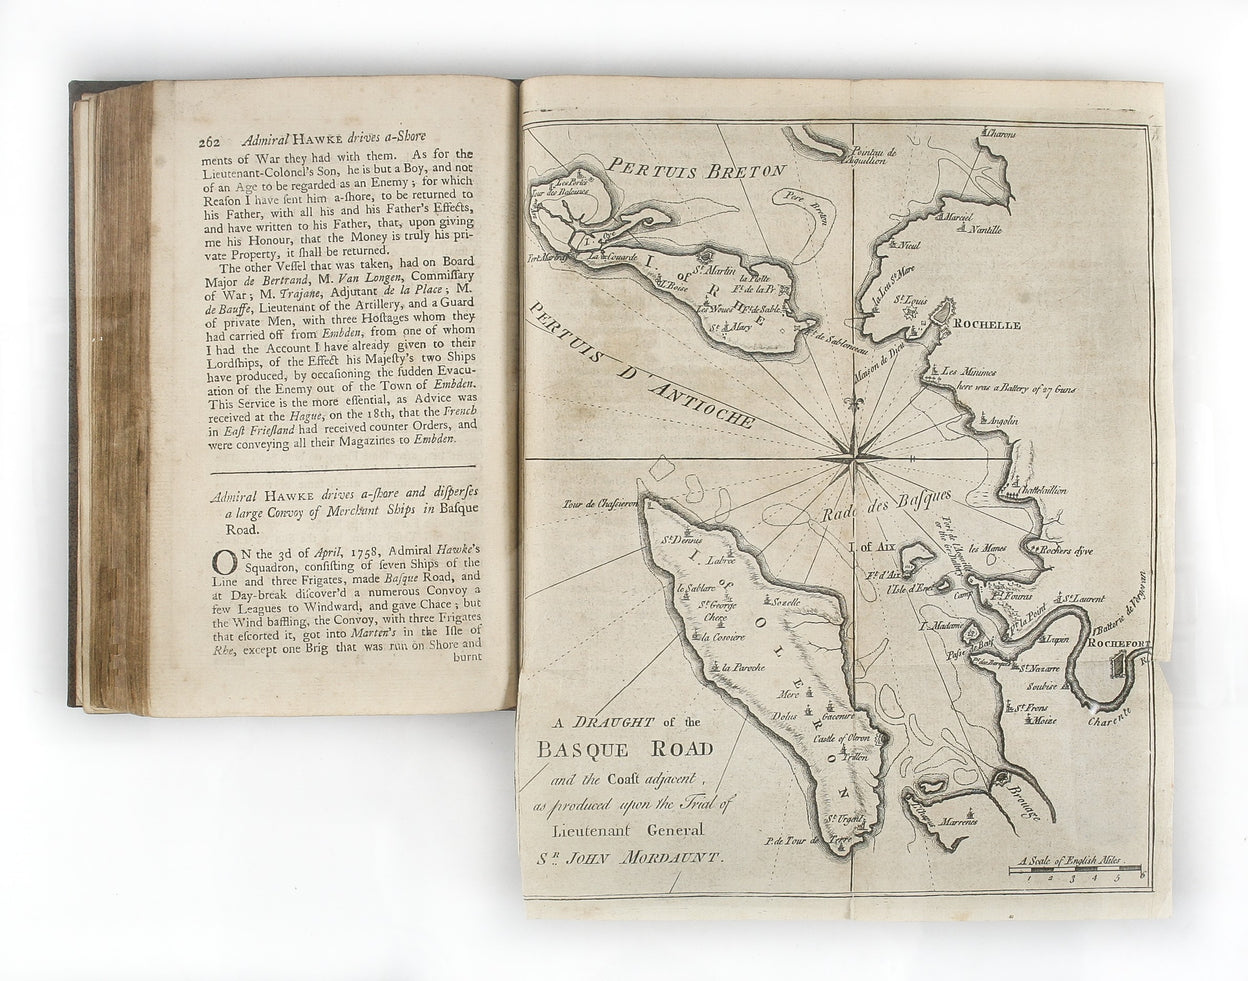 262 Admiral HAWKE drives a-Shore
ments of War they had with them. As for the
Lieutenant-Colonel's Son, he is but a Boy, and not
of an Age to be regarded as an Enemy; for which
Reaſon I have ſent him a-ſhore, to be returned to
his Father, with all his and his Father's Effects,
and have written to his Father, that, upon giving
me his Honour, that the Money is truly his pri-
vate Property, it ſhall be returned.
The other Veſſel that was taken, had on Board
Major de Bertrand, M. Van Longen, Commiſſary
of War; M. Trajane, Adjutant de la Place; M.
de Bauffe, Lieutenant of the Artillery, and a Guard
of private Men, with three Hoſtages whom they
had carried off from Embden, from one of whom
I had the Account I have already given to their
Lordſhips, of the Effect his Majeſty's two Ships
have produced, by occaſioning the ſudden Evacu-
ation of the Enemy out of the Town of Embden.
This Service is the more eſſential, as Advice was
received at the Hague, on the 18th, that the French
in Eaſt Frieſland had received counter Orders, and
were conveying all their Magazines to Embden.
Admiral HAWKE drives a-ſhore and diſperſes
a large Convoy of Merchant Ships in Baſque
Road.
ON the 3d of April, 1758, Admiral Hawke's
Squadron, conſiſting of ſeven Ships of the
Line and three Frigates, made Baſque Road, and
at Day-break diſcover'd a numerous Convoy a
few Leagues to Windward, and gave Chace; but
the Wind baffling, the Convoy, with three Frigates
that eſcorted it, got into Marten's in the Iſle of
Rhe, except one Brig that was run on Shore and
burnt
Charons
Pointau de
Aiguillion
PERTUIS BRETON
Port Breton
Marciel
Nantille
Nieul
St. Martin
la Flotte
I. of RHE
St. Mary
St. Louis
ROCHELLE
PERTUIS D'ANTIOCHE
Maison de Dieu
Les Minimes
here was a Battery of 27 Guns
Angolin
Chattelaillion
Tour de Chaſſieron
Rade des Baſques
St. Dennis
Labree
I. of Aix
les Manes
Rochers dyve
Ft. d'Aix
I. of OLERON
le Sablare
St. George
Chere
Sozelle
Camp
Ft. Fouras
St. Laurent
la Cosoiere
I. Madame
Lupen
ROCHEFORT
la Paroche
St. Nazarre
Soubise
Mere
Dolus
Gaconire
St. Frons
Moise
Charente
Castle of Olron
Trillon
Brouage
St. Urgent
P. de Tour de
Terre
Marrenes
A DRAUGHT of the
BASQUE ROAD
and the Coaſt adjacent,
as produced upon the Trial of
Lieutenant General
SR. JOHN MORDAUNT.
A Scale of English Miles.
1 2 3 4 5 6